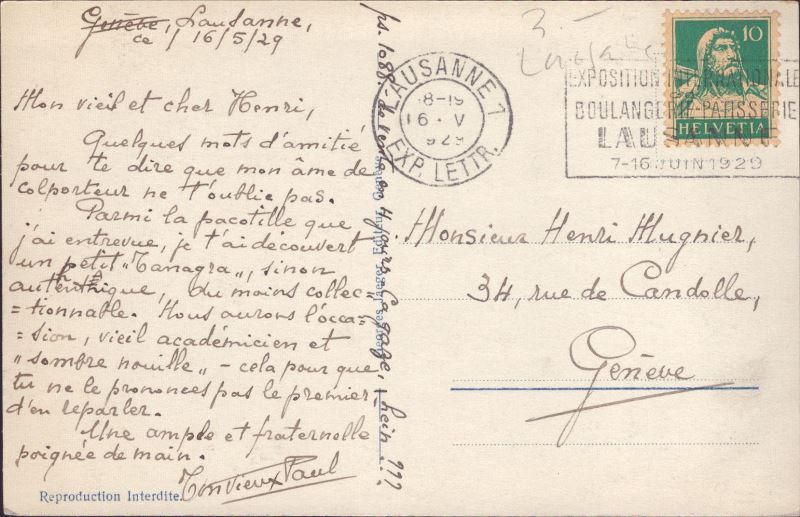 Genève, Lausanne,
ce 16/5/29
Mon vieil et cher Henri,
Quelques mots d'amitié
pour te dire que mon âme de
colporteur ne t'oublie pas.
Parmi la pacotille que
j'ai entrevue, je t'ai découvert
un petit „Tanagra”, sinon
authentique, du moins collec-
=tionnable. Nous aurons l'occa-
=sion, vieil académicien et
„sombre nouille” - cela pour que
tu ne le prononces pas le premier
d'en reparler.
Une ample et fraternelle
poignée de main.
Ton vieux Paul
Reproduction Interdite.
ps. 1088.- de vente en 4 jours, ça gaze, hein ???
Editeur, Genève
LAUSANNE 1
18-19
16. V
1929
EXP. LETTR.
3.-
EXPOSITION INTERNATIONALE
BOULANGERIE-PATISSERIE
LAUSANNE
7-16 JUIN 1929
10
HELVETIA
Monsieur Henri Mugnier,
34, rue de Candolle,
Genève